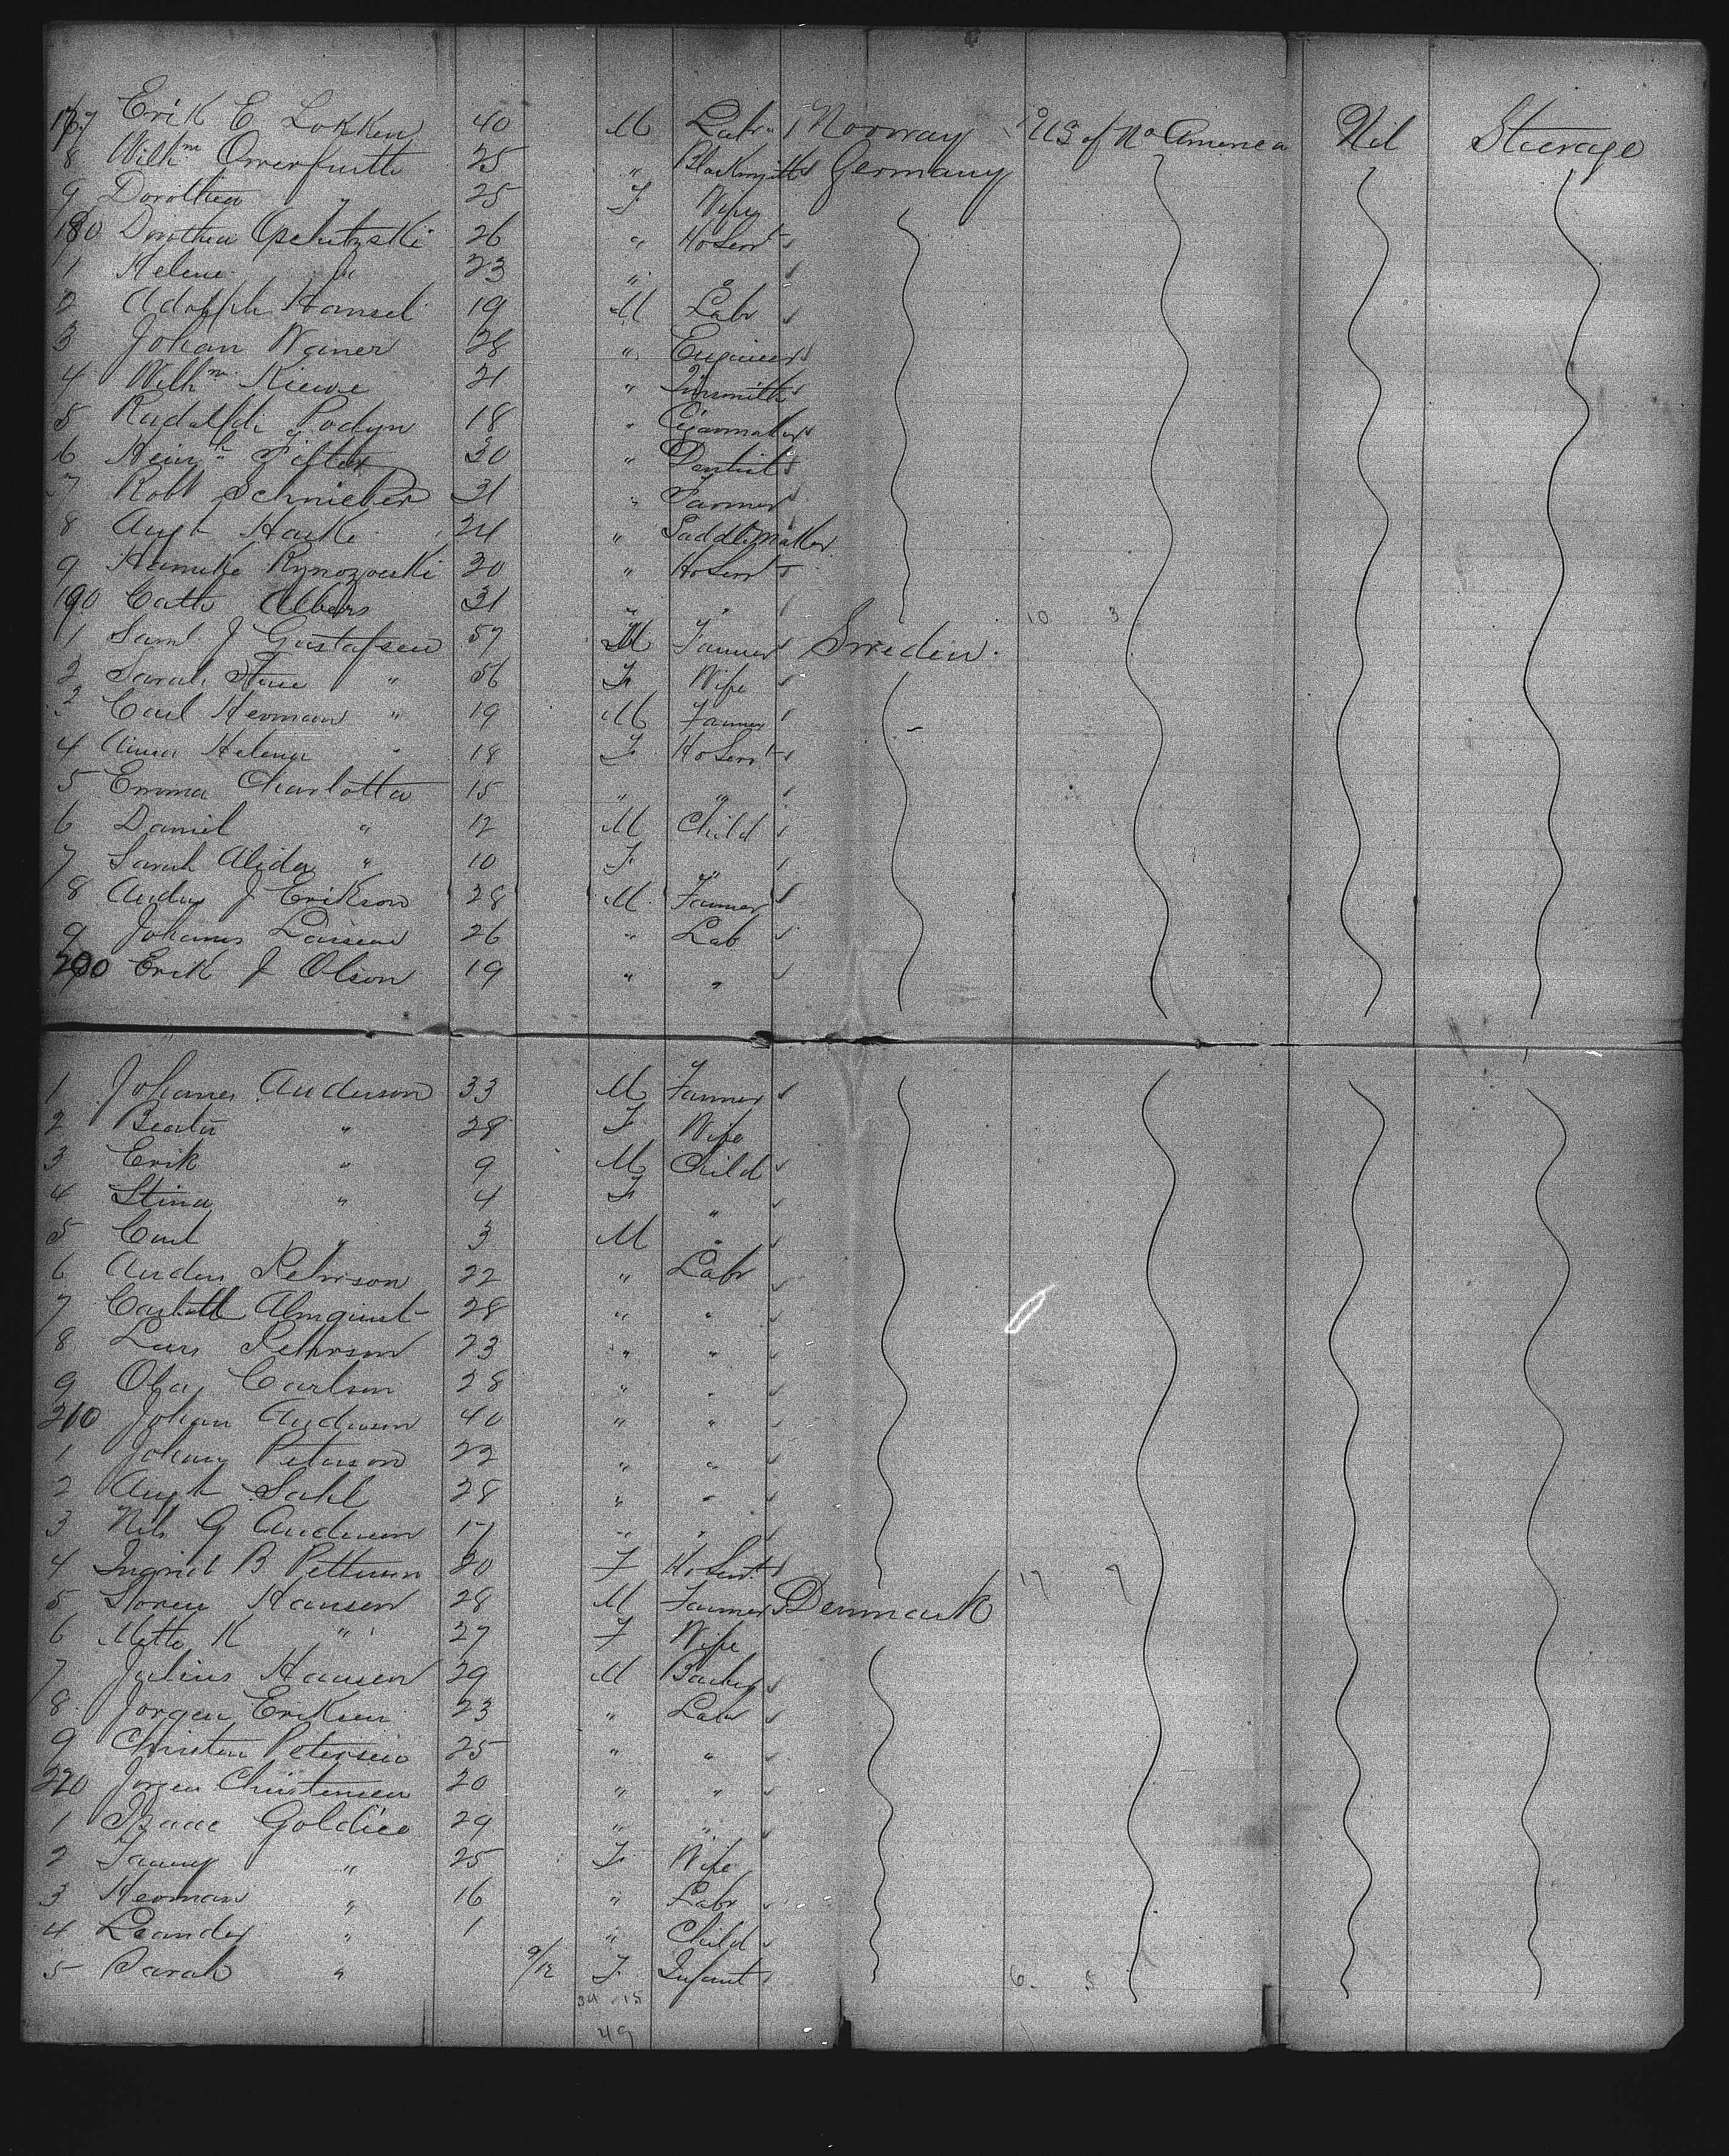 177 Erik E Lokken 40 M Labr Norway US of No America Nil Steerage
8 Wilhm 25 " Blacksmith Germany
9 Dorothea " 25 F Wife
180 Dorothea 26 " HoServt
1 Helene " 23 " "
2 Adolph Hamsel 19 M Labr
3 Johan Waner 28 " Engineer
4 Wilhm Kiewe 21 " Tinsmith
5 Rudolph Podyn 18 " Cigarmaker
6 Heinh 30 " Dentist
7 Robt Schnieber 31 " Farmer
8 Augt Harke 24 " Saddlemaker
9 20 " HoServt
190 Cath Albers 31 " " 10 3
1 Saml J Gustafsen 57 M Farmer Sweden
2 Sarah Stine " 56 F Wife
3 Carl Herman " 19 M Farmer
4 Anna Helena " 18 F HoServt
5 Emma Charlotta 15 " "
6 Daniel " 12 M Child
7 Sarah Alida " 10 F "
8 Anders J Erikson 28 M Farmer
9 Johanes Larsen 26 " Lab
200 Erik J Olson 19 " "
1 Johanes Anderson 33 M Farmer
2 Beata " 28 F Wife
3 Erik " 9 M Child
4 Stina " 4 F "
5 Carl " 3 M "
6 Anders Pehrson 22 " Labr
7 Almquist 28 " "
8 Lars Pehrson 23 " "
9 Olaf Carlson 28 " "
210 Johan Anderson 40 " "
1 Johan Peterson 22 " "
2 Augt Sahl 28 " "
3 Nils G Anderson 17 " "
4 Ingrid B Petterson 20 F HoServt 17 7
5 Soren Hansen 28 M Farmer Denmark
6 Mette K " 27 F Wife
7 Julius Hansen 29 M
8 Jorgen Eriksen 23 " Labr
9 Christen Petersen 25 " "
220 Jorgen Christensen 20 " "
1 Isaac 29 " "
2 Fanny " 25 F Wife
3 Herman " 16 " Labr
4 Leander " 1 " Child
5 Sarah " 9/12 F Infant 6 5
34 15
49